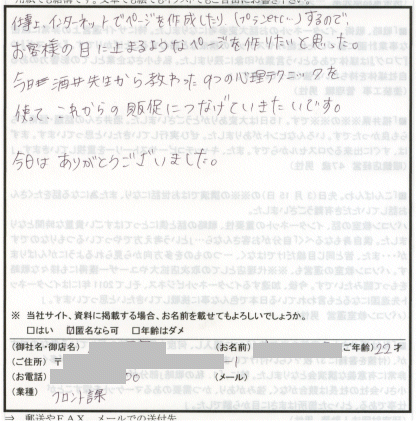 仕事上、インターネットでページを作成したり(プランetc…)するので、
お客様の目に止まるようなページを作りたいと思った。
今日酒井先生から教わった9つの心理テクニックを
使って、これからの販促につなげていきたいです。
今日は ありがとうございました。
※ 当社サイト、資料に掲載する場合、お名前を載せてもよろしいでしょうか。
□はい ☑匿名なら可 □年齢はダメ
(御社名・御店名) (お名前) ご年齢) 22才
(ご住所) 〒 -1
(お電話) 00 (メール)
(業種) フロント課
⇒ 郵送やFAX、メールでの送付先